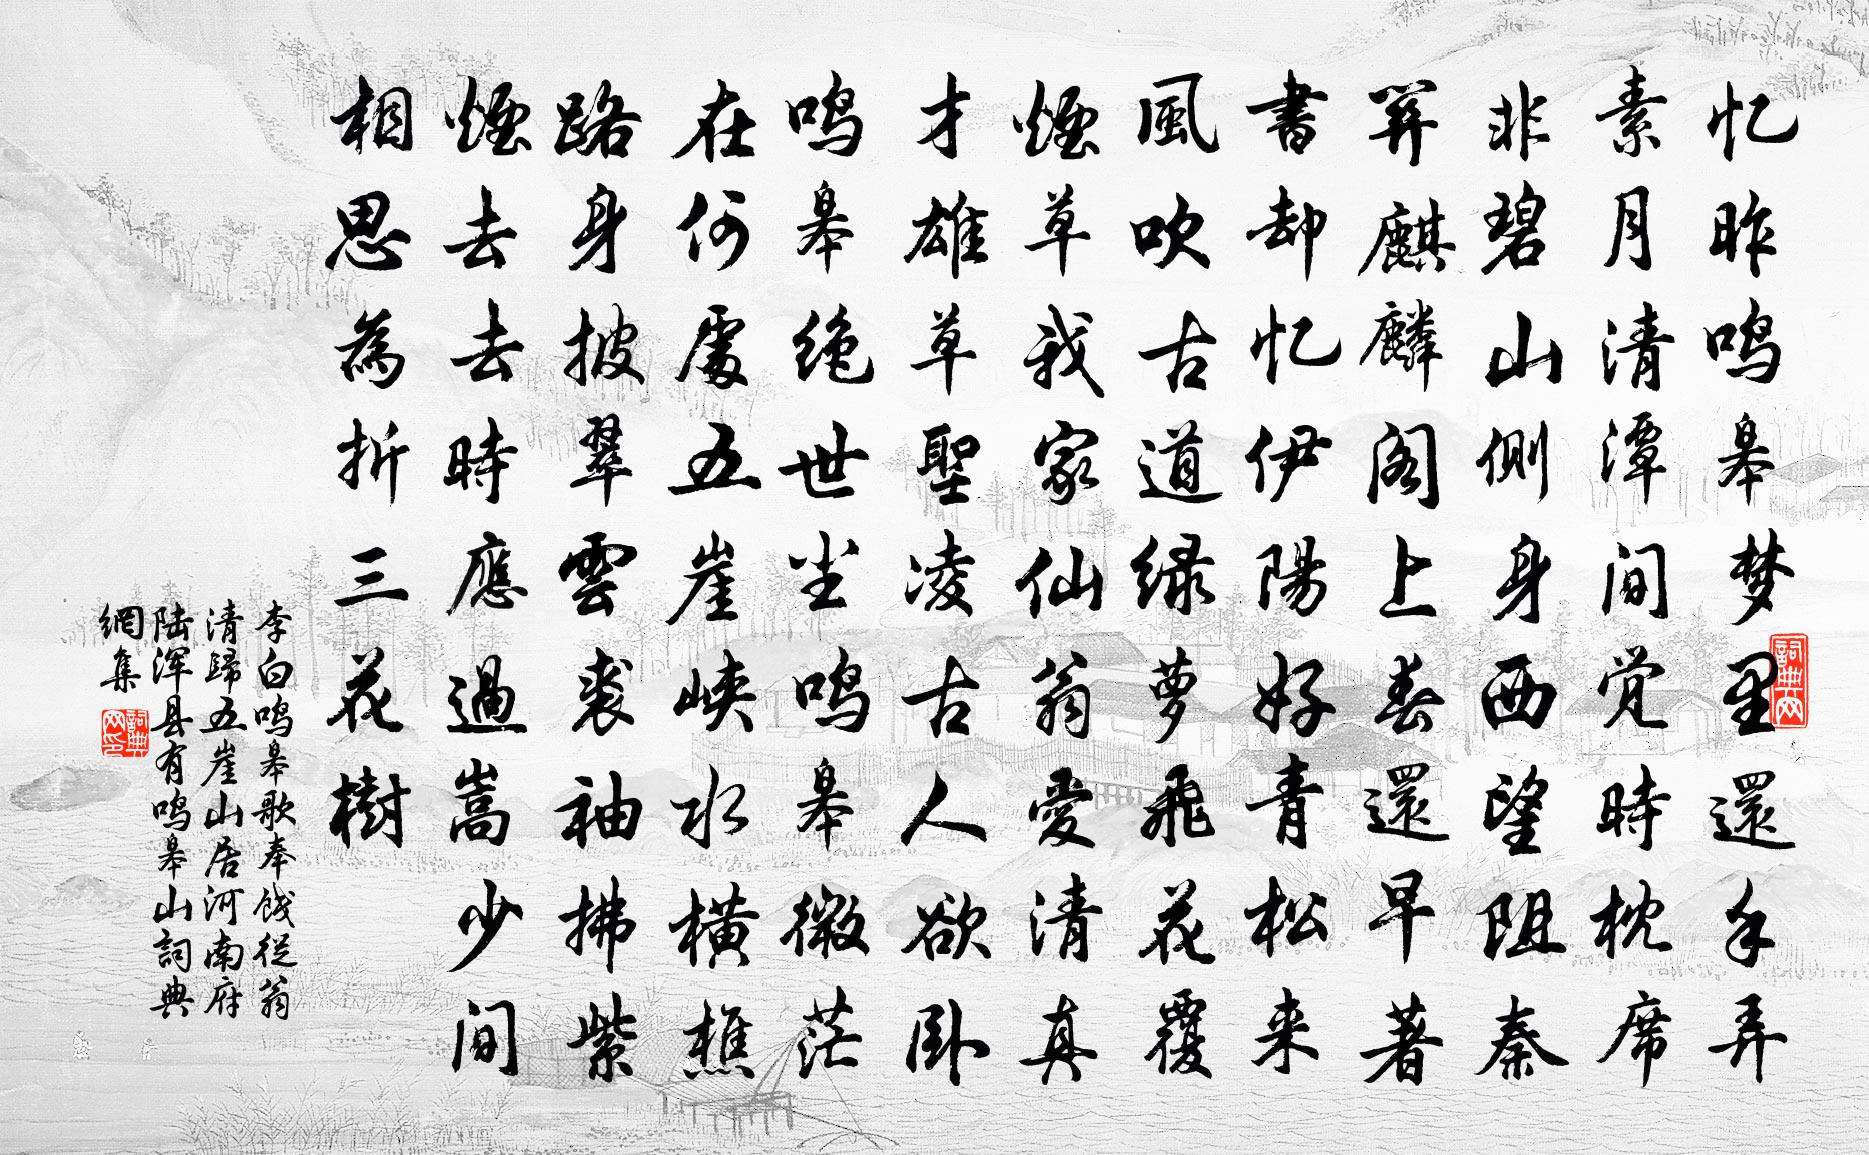 忆昨鸣皋梦里還手弄
素月清潭间觉時枕席
非碧山侧身西望阻秦
開麒麟阁上春還早著
書却忆伊陽好青松来
風吹古道绿萝飛花覆
煙草我家仙翁愛清真
才雄草聖凌古人欲卧
鸣皋绝世尘鸣皋微茫
在何處五崖峡水横樵
路身披翠雲裘袖拂紫
煙去去時應過嵩少间
相思為折三花樹
李白鸣皋歌奉饯從翁
清歸五崖山居河南府
陆浑县有鸣皋山詞典
網集
詞典网
詞典网印